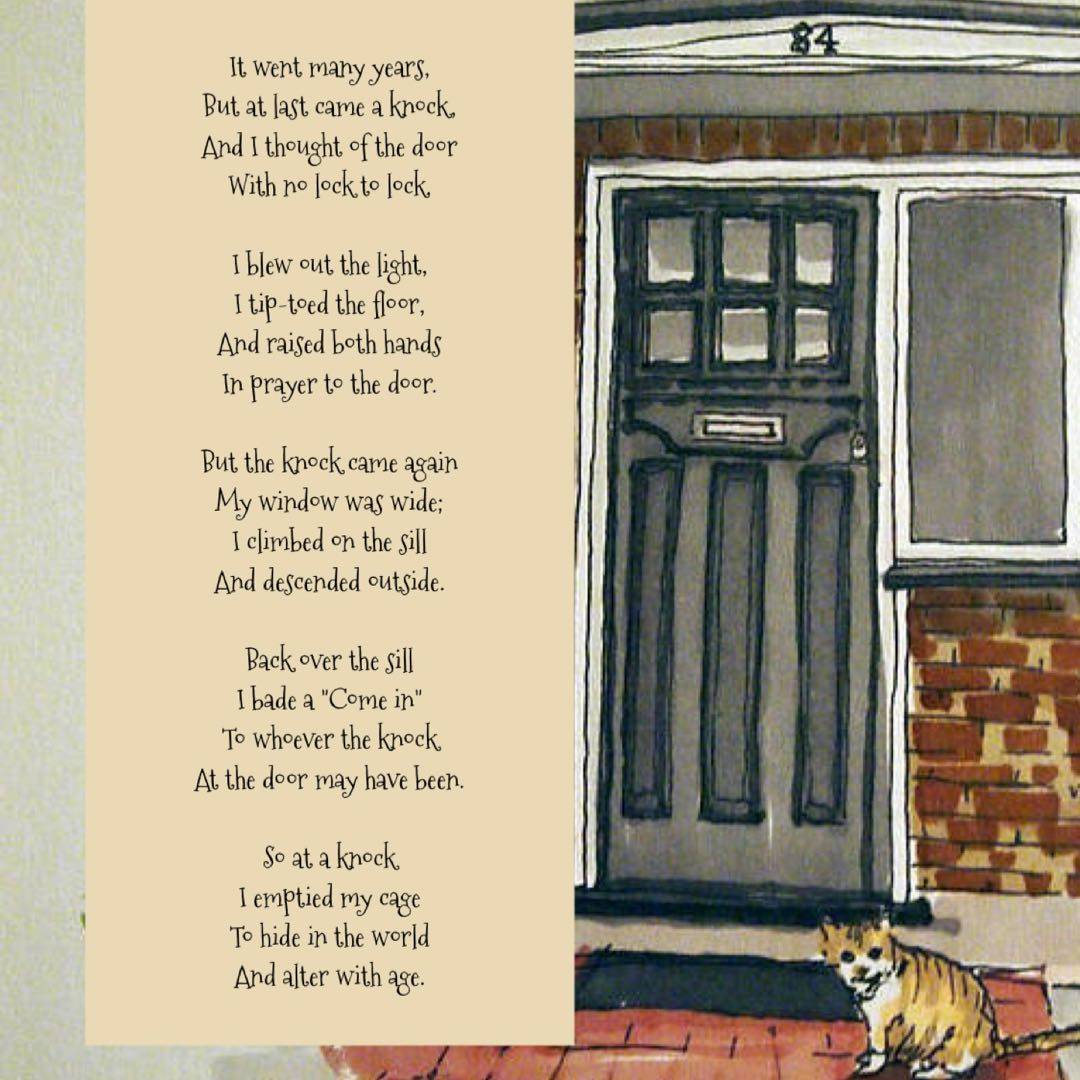 It went many years,
But at last came a knock,
And I thought of the door
With no lock to lock.

I blew out the light,
I tip-toed the floor,
And raised both hands
In prayer to the door.

But the knock came again
My window was wide;
I climbed on the sill
And descended outside.

Back over the sill
I bade a "Come in"
To whoever the knock
At the door may have been.

So at a knock
I emptied my cage
To hide in the world
And alter with age.
84